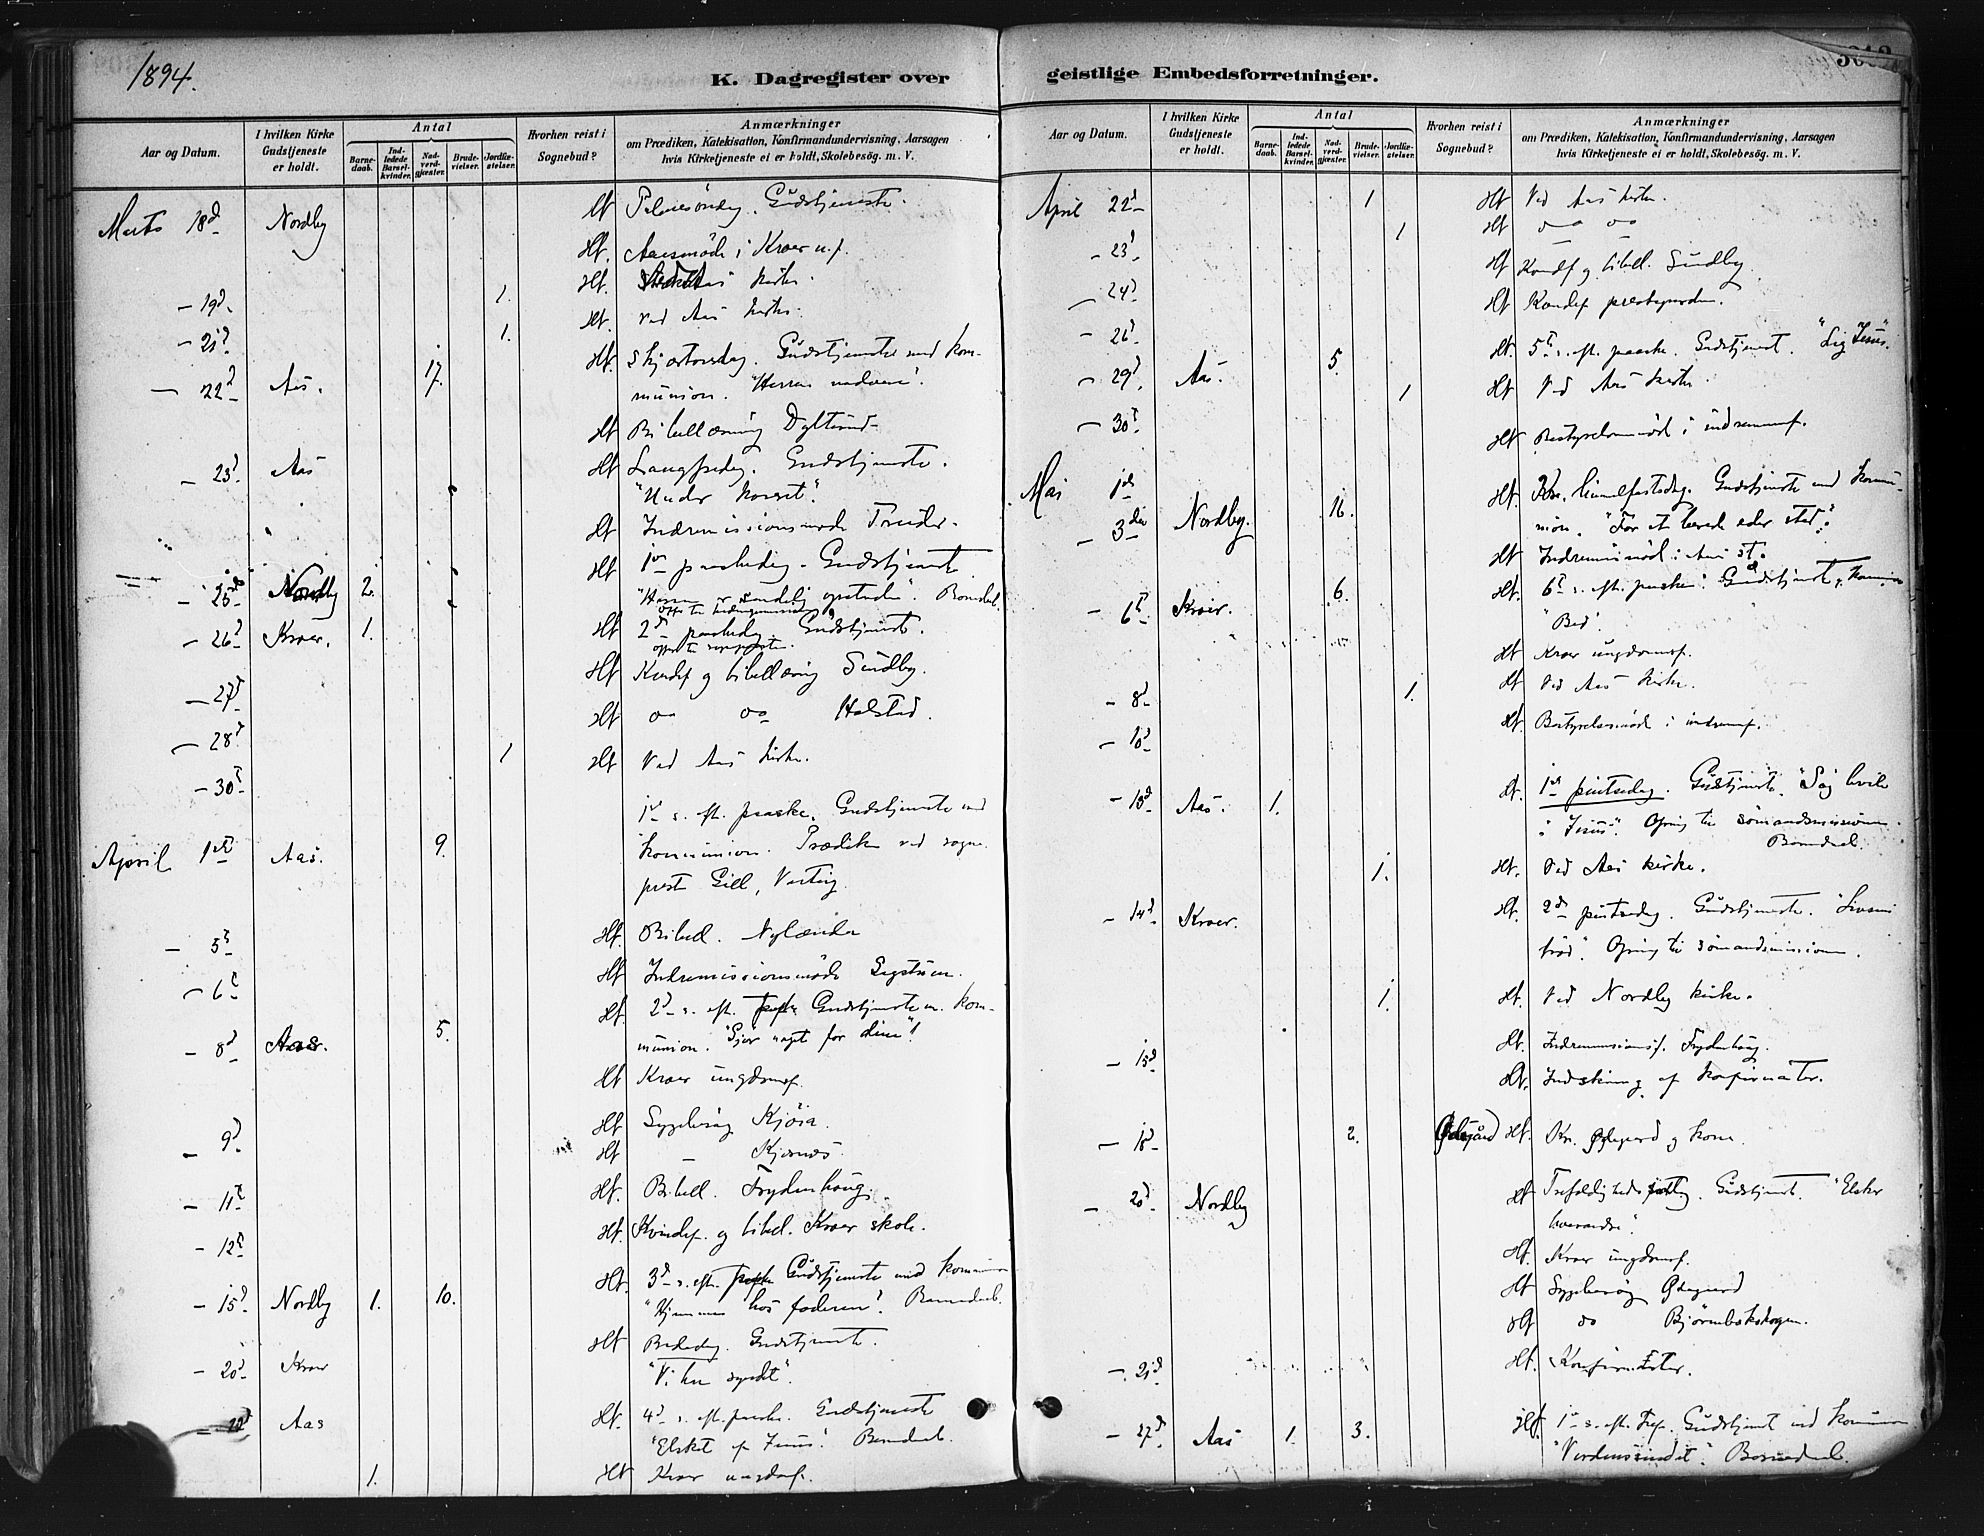 1894.
K. Dagregister over
Aar og Datum.
I hvilken Kirke Gudstjeneste er holdt.
Antal
Barne-daab.
Ind-ledede Barsel-kvinder.
Nad-verd-gjæster.
Brude-vielser.
Jordfæ-stelser.
Hvorhen reist i Sognebud?
Anmærkninger
om Prædiken, Katekisation, Konfirmandundervisning, Aarsagen
hvis Kirketjeneste ei er holdt, Skolebesøg. m. V.
Marts 18d Nordby Hf Palmesöndag. Gudstjeneste.
Hf. Aarsmöde i Kroer u.f.
- 19d 1. Hf. Aas kirke.
- 21d 1. Hf. Ved Aas kirke.
- 22d Aas. 17. Hf. Skjærtorsdag. Gudstjeneste med kom-
munion. "Herrens nadvere".
Hf Bibellæsning
- 23d Aas Hf Langfredag. Gudstjeneste.
"Under korset".
Hf Indremissionsmöde
- 25de Nordby 2. Hf 1ste paaskedag. Gudstjeneste
"Herren er sandelig opstanden". Barnedaab.
- 26d Kroer. 1. Hf 2d paaskedag. Gudstjeneste.
- 27d Hf og bibellæsning Sundby.
- 28d Hf do do Holstad.
- 30t 1 Hf Ved Aas kirke.
April 1ste Aas. 9. 1st s. eft. paaske. Gudstjeneste med
kommunion. Prædiken ved sogne-
prest Gill, Vestby.
- 5t Hf. Bibell. Nylænde
- 6t Hf Indremissionsmöde
- 8d Aas. 5. Hf. 2d s. eft. paaske Gudstjeneste m. kom-
munion. "Gjør noget for dine"!
Hf Kroer ungdomsf.
- 9d Hf Sygebesög Kjösa.
Hf - Kjærnes.
- 11t Hf. Bibell. Frydenhaug.
- 12t Hf. Kvindef. og bibel. Kroer skole.
- 15d Nordby 1. 10. Hf. 3d s. eft. paaske Gudstjeneste med kommunion
"Hjemme hos faderen". Barnedaab.
- 20d Kroer Hf Bededag. Gudstjeneste.
"Vi har syndet".
- 22d Aas Hf. 4d s. eft. paaske. Gudstjeneste
"Elsket af Jesus". Barnedaab.
1. Hf Kroer ungdomsf.
geistlige Embedsforretninger.
Aar og Datum.
I hvilken Kirke Gudstjeneste er holdt.
Antal
Barne-daab.
Ind-ledede Barsel-kvinder.
Nad-verd-gjæster.
Brude-vielser.
Jordfæ-stelser.
Hvorhen reist i Sognebud?
Anmærkninger
om Prædiken, Katekisation, Konfirmandundervisning, Aarsagen
hvis Kirketjeneste ei er holdt, Skolebesøg. m. V.
April 22d 1 Hf Ved Aas kirke.
1 Hf do do
- 23d Hf og bibell. Sundby.
- 24d Hf prestegaarden.
- 26d
- 29d Aas. 5. Hf. 5t s. eft. paaske. Gudstjenest. "Lig Jesus".
1 Hf Ved Aas kirke.
- 30t Hf Bestyrelsesmöde i indremf.
Mai 1ste
- 3die Nordby. 16. Hf. Kr. himmelfartsdag. Gudstjeneste med kommu-
nion. "For at berede eder sted".
Hf Indremismöde i Aas st.
- 6t Kroer. 6. Hf. 6t s. eft. paaske. Gudstjeneste, kommunion
"Bed".
Hf Kroer ungdomsf.
- 8d 1. Hf Ved Aas kirke.
- 10d Hf. Bestyrelsesmöde i indremf.
- 13d Aas. 1. Hf. 1ste pintsedag. Gudstjeneste. "Søg hvile
i Jesus". Ofring til sömandsmissionen.
Barnedaab.
1. Hf. Ved Aas kirke.
- 14d Kroer. Hf. 2d pintsedag. Gudstjeneste. "Livsens
bröd". Ofring til sömandsmissionen.
1. Hf. Ved Nordby kirke.
- 15d Hf. Indremissionsf. Frydenhaug.
Hf. Indskrivning af konfirmanter.
- 18d 2. Ødegård Hf. Kr. Ødegaard og kone.
- 20d Nordby Hf Trefoldighedssöndag. Gudstjeneste. "Elsker
hverandre".
Hf. Kroer ungdomsf.
Hf Sygebesög Ødegaard
Hf do Björnebekskogen.
- 21d Hf. Konfirmanter.
- 27d Aas 1. 3. Hf. 1ste s. eft. Tref. Gudstjenest med kommunion
Barnedaab.